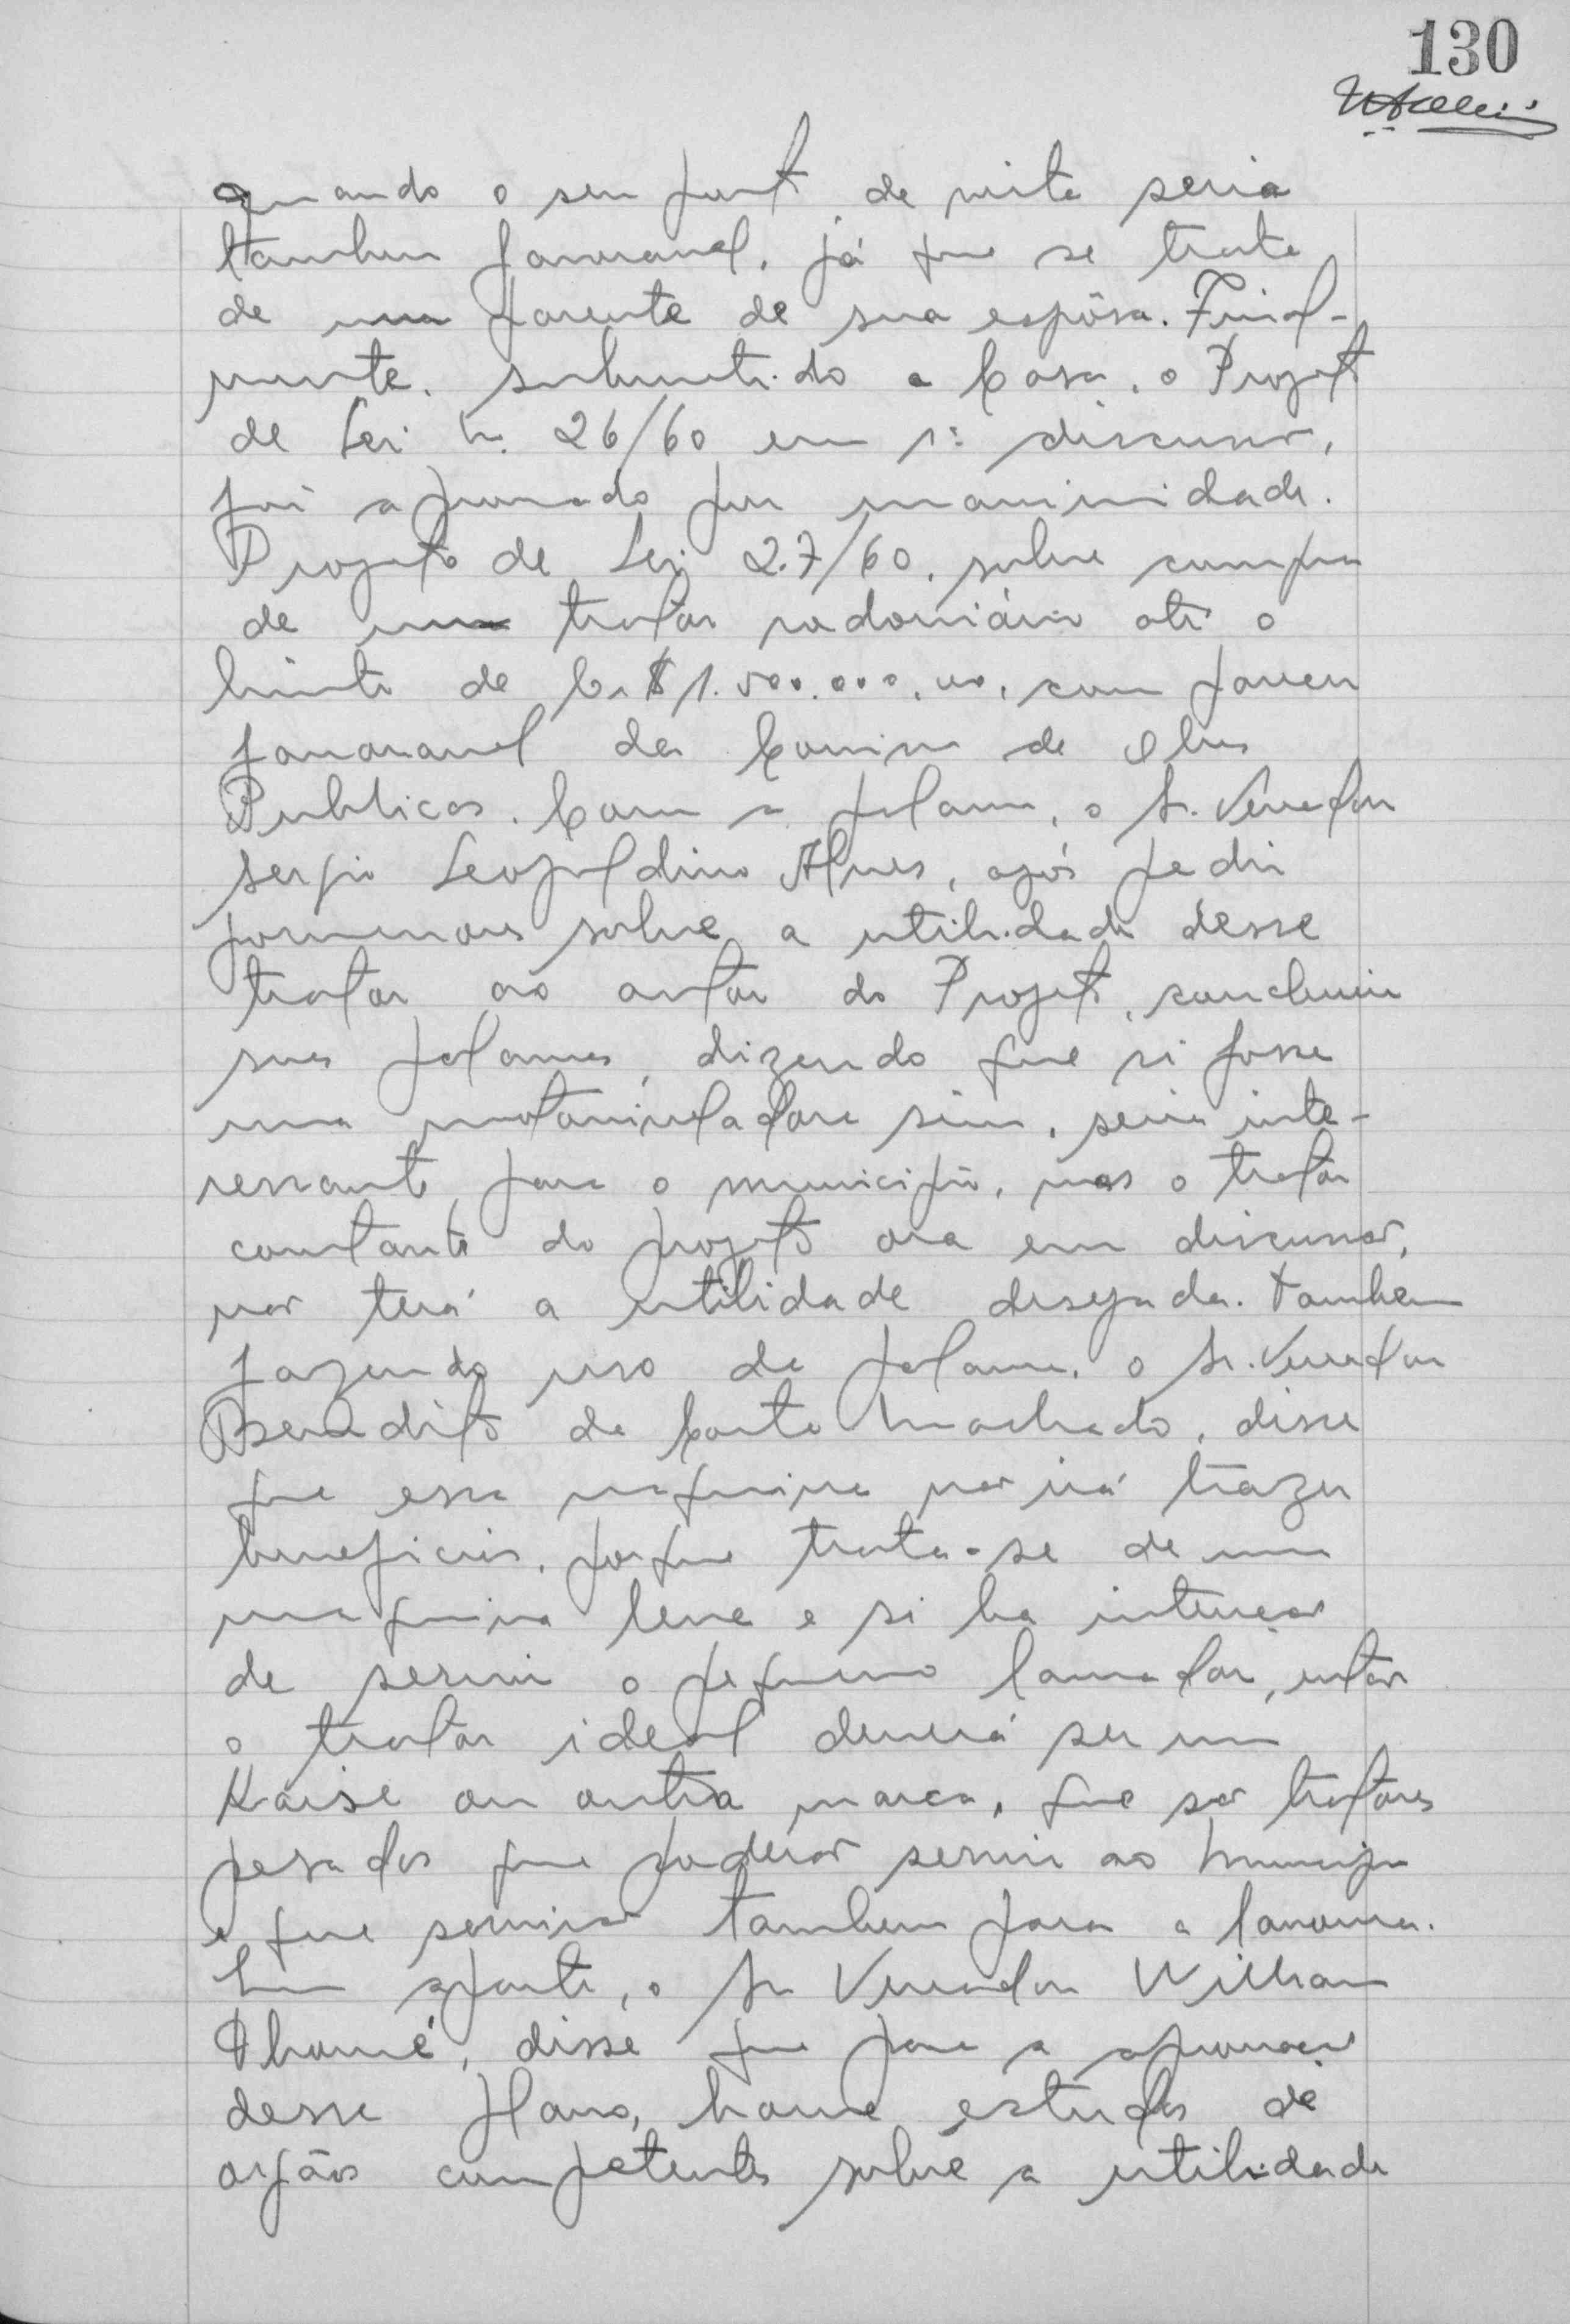 130
quando o seu ponto de vista seria
tambem favoravel, já que se trata
de uma parente de sua espôsa. Final-
mente, submetido a Casa, o Projeto
de Lei n. 26/60 em 1ª discussão,
foi aprovado por unanimidade.
Projeto de Lei 27/60, sobre compra
de um trator rodoviário até o
limite de Cr$1.500.000,00, com parecer
favoravel da Comissão de Obras
Publicas. Com a palavra, o Sr. Vereador
Sergio Leopoldino Alves, após pedir
pormenores sobre a utilidade desse
trator ao autor do Projeto, concluiu
suas palavras, dizendo que si fosse
uma motoniveladora sim, seria inte-
ressante para o municipio, mas o trator
constante do projeto ora em discussão,
não terá a utilidade desejada. Tambem
fazendo uso da palavra, o Sr. Vereador
Benedito da Costa Machado, disse
que essa maquina não irá trazer
beneficios, porque trata-se de uma
maquina leve e si ha intenção
de servir o pequeno lavrador, então
o trator ideal deverá ser um
Kaise ou outra marca, que são tratores
pesados que poderão servir ao Municipio
e que servirão tambem para a lavoura.
Em aparte, o Sr. Vereador William
Thomé, disse que para a aprovação
desse plano, houve estudos de
orgãos competentes sobre a utilidade